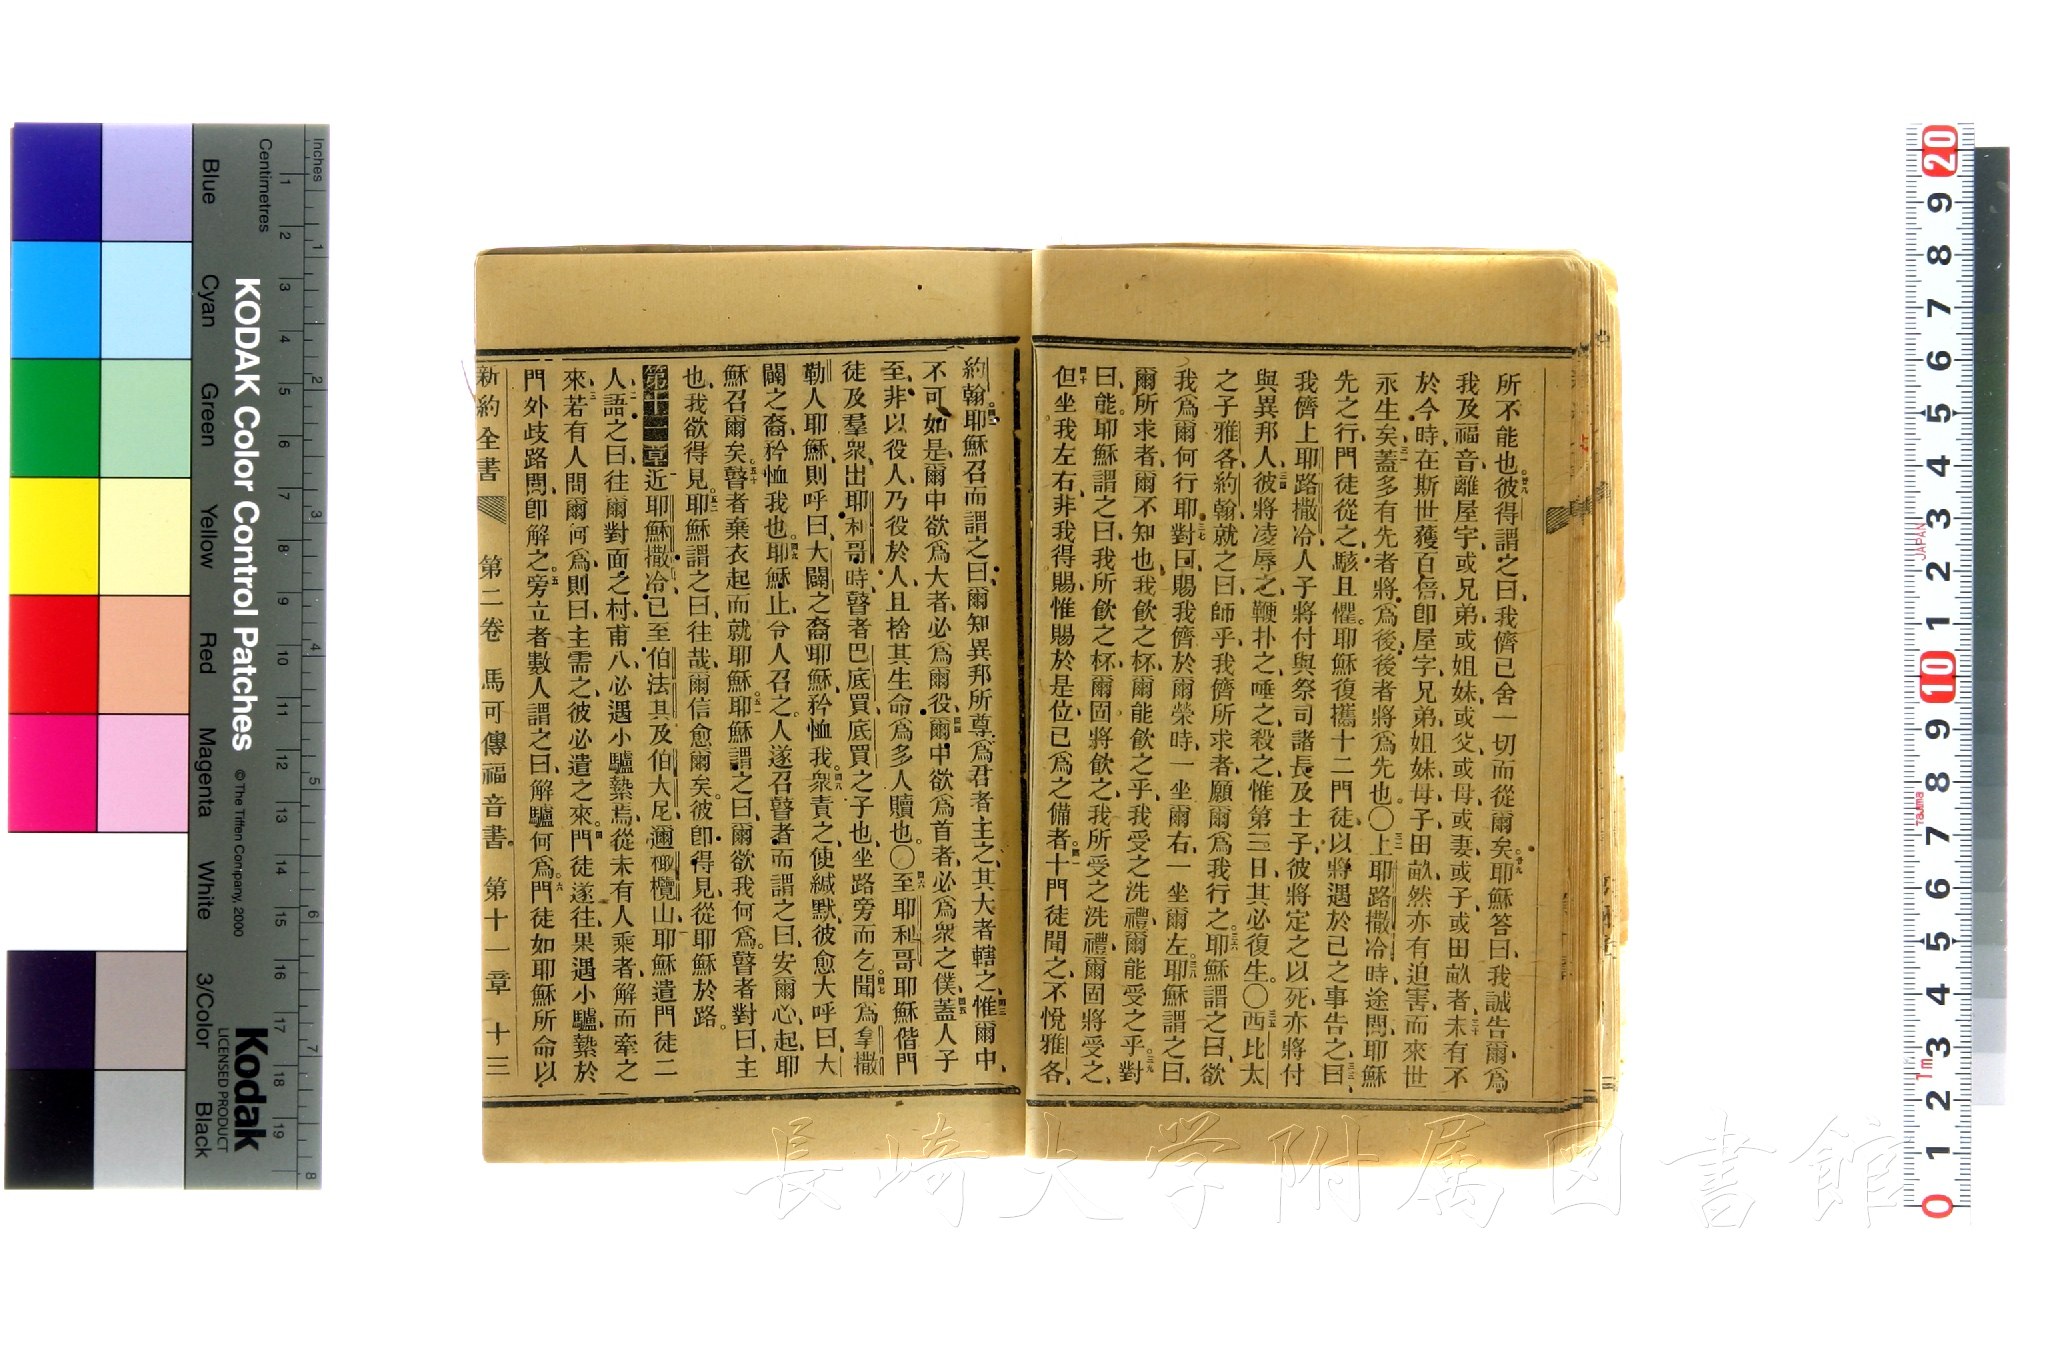 所不能也彼得謂之曰我儕已舍一切而從爾矣耶穌答曰我誠告爾爲
我及福音離屋宇或兄弟或姐妹或父或母或妻或子或田畝者未有不
於今時在斯世獲百倍卽屋宇兄弟姐妹母子田畝然亦有迫害而來世
永生矣蓋多有先者將爲後後者將爲先也〇上耶路撒冷時途間耶穌
先之行門徒從之駭且懼耶穌復攜十二門徒以將遇於己之事告之曰
我儕上耶路撒冷人子將付與祭司諸長及士子彼將定之以死亦將付
與異邦人彼將凌辱之鞭扑之唾之殺之惟第三日其必復生〇西比太
之子雅各約翰就之曰師乎我儕所求者願爾爲我行之耶穌謂之曰欲
我爲爾何行耶對曰賜我儕於爾榮時一坐爾右一坐爾左耶穌謂之曰
爾所求者爾不知也我飲之杯爾能飲之乎我受之洗禮爾能受之乎對
曰能耶穌謂之曰我所飲之杯爾固將飲之我所受之洗禮爾固將受之
但坐我左右非我得賜惟賜於是位已爲之備者十門徒聞之不悅雅各
約翰耶穌召而謂之曰爾知異邦所尊爲君者主之其大者轄之惟爾中
不可如是爾中欲爲大者必爲爾役爾中欲爲首者必爲衆之僕蓋人子
至非以役人乃役於人且捨其生命爲多人贖也〇至耶利哥耶穌偕門
徒及羣衆出耶利哥時瞽者巴底買底買之子也坐路旁而乞聞爲拿撒
勒人耶穌則呼曰大闢之裔耶穌矜恤我衆責之使緘默彼愈大呼曰大
闢之裔矜恤我也耶穌止令人召之人遂召瞽者而謂之曰安爾心起耶
穌召爾矣瞽者棄衣起而就耶穌耶穌謂之曰爾欲我何爲瞽者對曰主
也我欲得見耶穌謂之曰往哉爾信愈爾矣彼卽得見從耶穌於路
第十一章近耶穌撒冷已至伯法其及伯大尼邇橄欖山耶穌遣門徒二
人語之曰往爾對面之村甫入必遇小驢縶焉從未有人乘者解而牽之
來若有人問爾何爲則曰主需之彼必遣之來門徒遂往果遇小驢縶於
門外歧路間卽解之旁立者數人謂之曰解驢何爲門徒如耶穌所命以
新約全書 第二卷 馬可傳福音書 第十一章 十三
Inches
Centimetres
Blue Cyan Green Yellow Red Magenta White 3/Color Black
KODAK Color Control Patches
© The Tiffen Company, 2000
Kodak
LICENSED PRODUCT
JAPAN
Tajima
長崎大学附属図書館